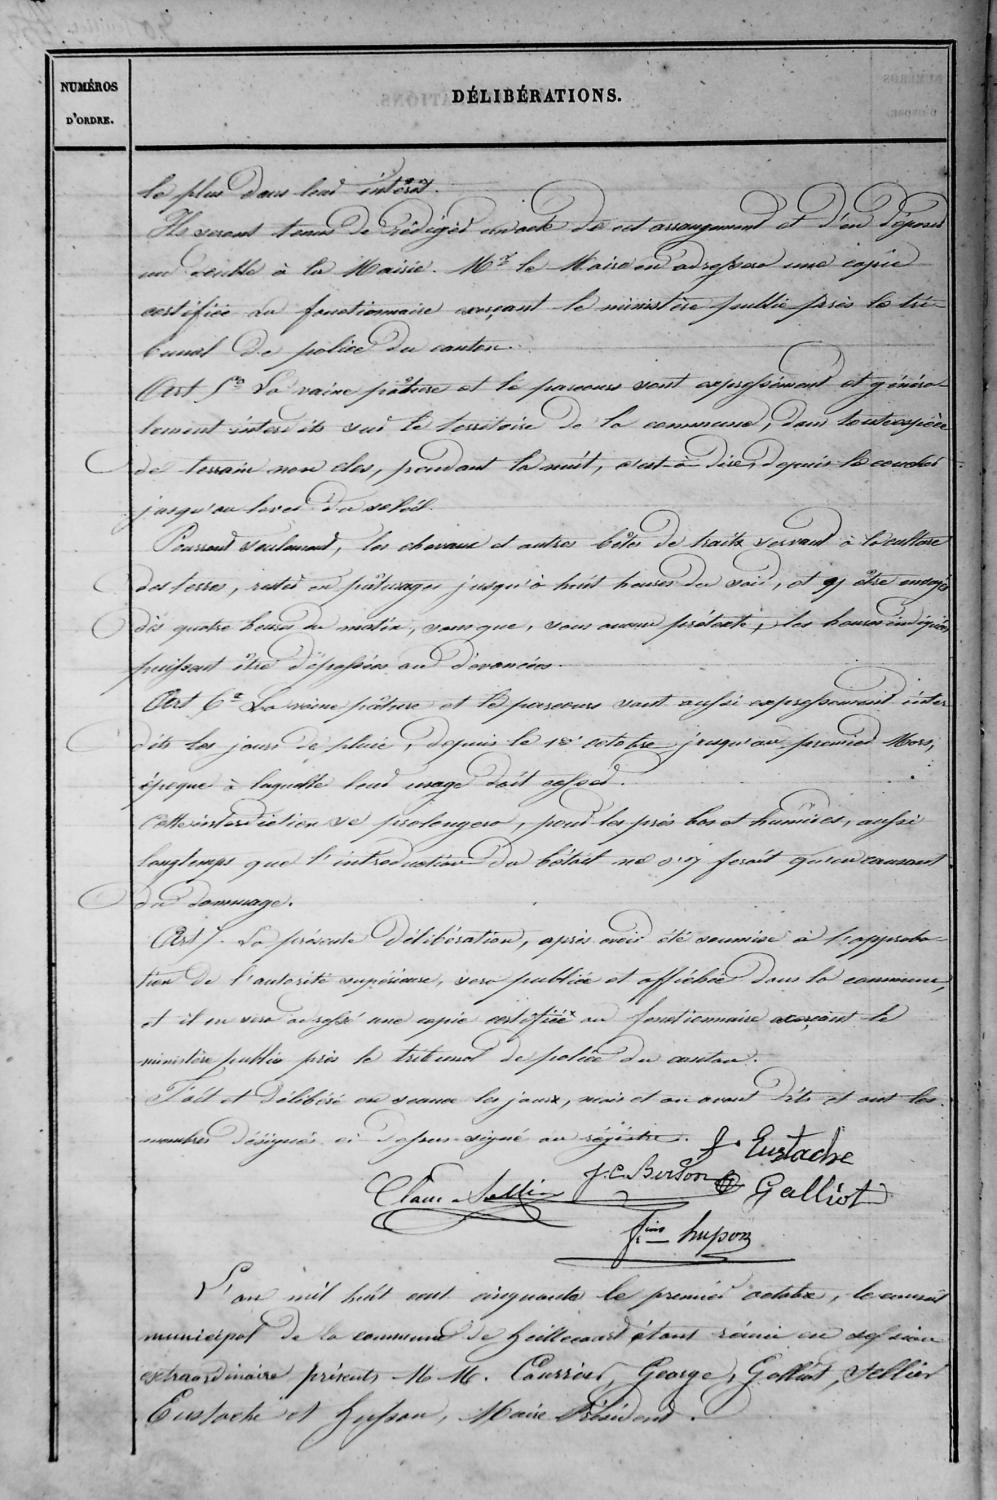 NUMÉROS
D'ORDRE.
DÉLIBÉRATIONS.
le plus dans leur intérêt.
Ils seront tenus de rédiger un acte de cet arrangement et d'en déposer
un double à la Mairie. Mr le Maire en adressera une copie
certifiée au fonctionnaire exerçant le ministère public près le tri-
bunal de police du canton.
Art 5e La vaine pâture et le parcours sont expressément et généra-
lement interdits sur le territoire de la commune, dans toute espèce
de terrain non clos, pendant la nuit, c'est-à-dire, depuis le coucher
jusqu'au lever du soleil.
Pourront seulement, les chevaux et autres bêtes de traits servant à la culture
des terres, rester en pâturages jusqu'à huit heures du soir, et y être
dès quatre heures du matin, sans que, sous aucun prétexte, les heures indiquées
puissent être dépassées ou dévancées.
Art 6e La vaine pâture et le parcours sont aussi expressement inter
dits les jours de pluie, depuis le 18 octobre jusqu'au premier Mars,
époque à laquelle leur usage doit cesser.
Cette interdiction se prolongera, pour les prés bas et humides, aussi
longtemps que l'introduction du bétail ne s'y ferait qu'en causant
du dommage.
Art 7. La présente délibération, après avoir été soumise à l'approba-
tion de l'autorité supérieure, sera publiée et affichée dans la commune,
et il en sera adressé une copie certifiée au fonctionnaire exerçant le
ministère public près le tribunal de police du canton.
Fait et délibéré en séance les jour, mois et an avant dits et ont les
membres désignés ci dessus signé au régistre.
J. Eustache
Claue Sellier J. C. Berson Galliot
fois husson
L'an mil huit cent cinquante le premier octobre, le conseil
municipal de la commune de heillecourt étant réuni en session
extraordinaire présents M M. Courrier, George, Galliot, Sellier
Eustache et husson, Maire Président.